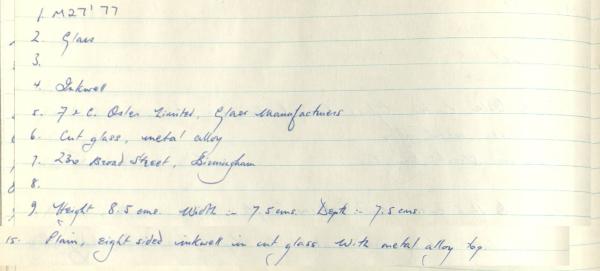 1. M27'77
2. Glass
3.
4. Inkwell
5. F & C. Osler Limited, Glass Manufacturers
6. Cut glass, metal alloy
7. 230 Broad Street, Birmingham
8.
9. Height 8.5 cms. Width :- 7.5 cms. Depth :- 7.5 cms.
15. Plain, eight sided inkwell in cut glass. With metal alloy top.